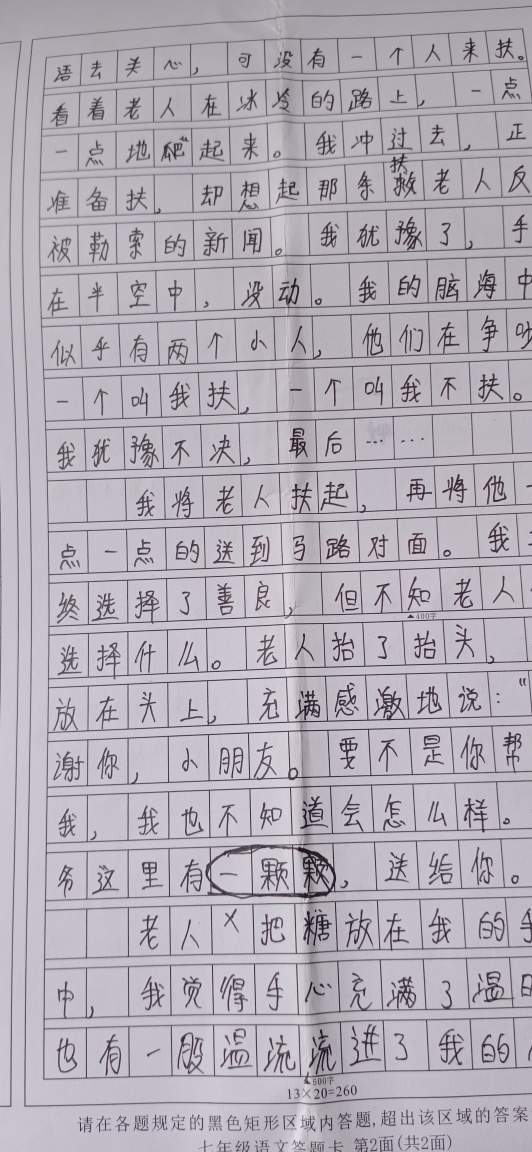 语去关心，可没有一个人来扶。
看着老人在冰冷的路上，一点
一点地“爬”起来。我冲过去，正
准备扶，却想起那条救老人反
扶
被勒索的新闻。我犹豫了，手
在半空中，没动。我的脑海中
似乎有两个小人，他们在争吵
一个叫我扶，一个叫我不扶。
我犹豫不决，最后……
我将老人扶起，再将他一
点一点的送到马路对面。我
终选择了善良，但不知老人
▲400字
选择什么。老人抬了抬头，
放在头上，充满感激地说：“
谢你，小朋友。要不是你帮
我，我也不知道会怎么样。
爷这里有一颗颗，送给你。
老人×把糖放在我的手
中，我觉得手心充满了温
也有一股温流流进了我的
▲600字
13×20=260
请在各题规定的黑色矩形区域内答题,超出该区域的答案
七年级语文答题卡 第2面(共2面)